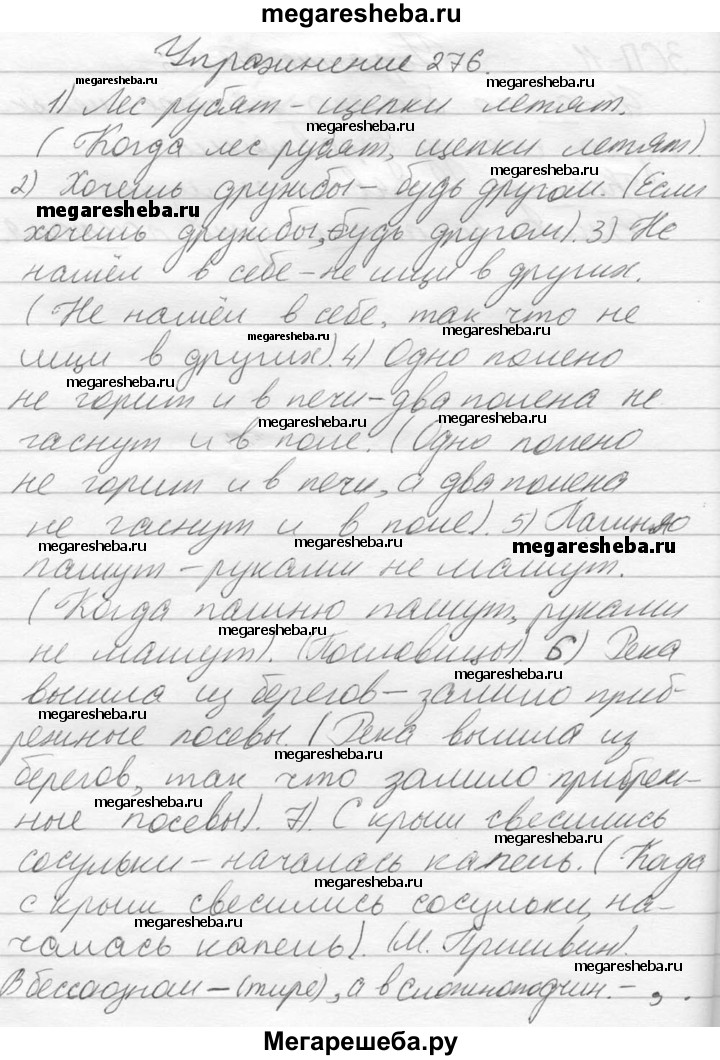 megaresheba.ru
Упражнение 276.
megaresheba.ru megaresheba.ru
1) Лес рубят – щепки летят.
megaresheba.ru
(Когда лес рубят, щепки летят).
2) Хочешь дружбы – будь другом. (Если
megaresheba.ru
хочешь дружбы, будь другом). 3) Не
нашёл в себе – не ищи в других.
(Не нашёл в себе, так что не
megaresheba.ru megaresheba.ru
ищи в других). 4) Одно полено
megaresheba.ru
не горит и в печи – два полена не
megaresheba.ru megaresheba.ru
гаснут и в поле. (Одно полено
не горит и в печи, а два полена
не гаснут и в поле). 5) Пашню
megaresheba.ru megaresheba.ru megaresheba.ru
пашут – руками не машут.
(Когда пашню пашут, руками
megaresheba.ru
не машут). (Пословицы). 6) Река
megaresheba.ru
вышла из берегов – залило приб-
megaresheba.ru
режные посевы. (Река вышла из
megaresheba.ru
берегов, так что залило прибреж-
megaresheba.ru
ные посевы). 7). С крыш свесились
megaresheba.ru
сосульки – началась капель. (Когда
megaresheba.ru
с крыш свесились сосульки, на-
megaresheba.ru
чалась капель). (М. Пришвин).
megaresheba.ru
В бессоюзном – (тире), а в сложноподчин. – , .
Мегарешеба.ру